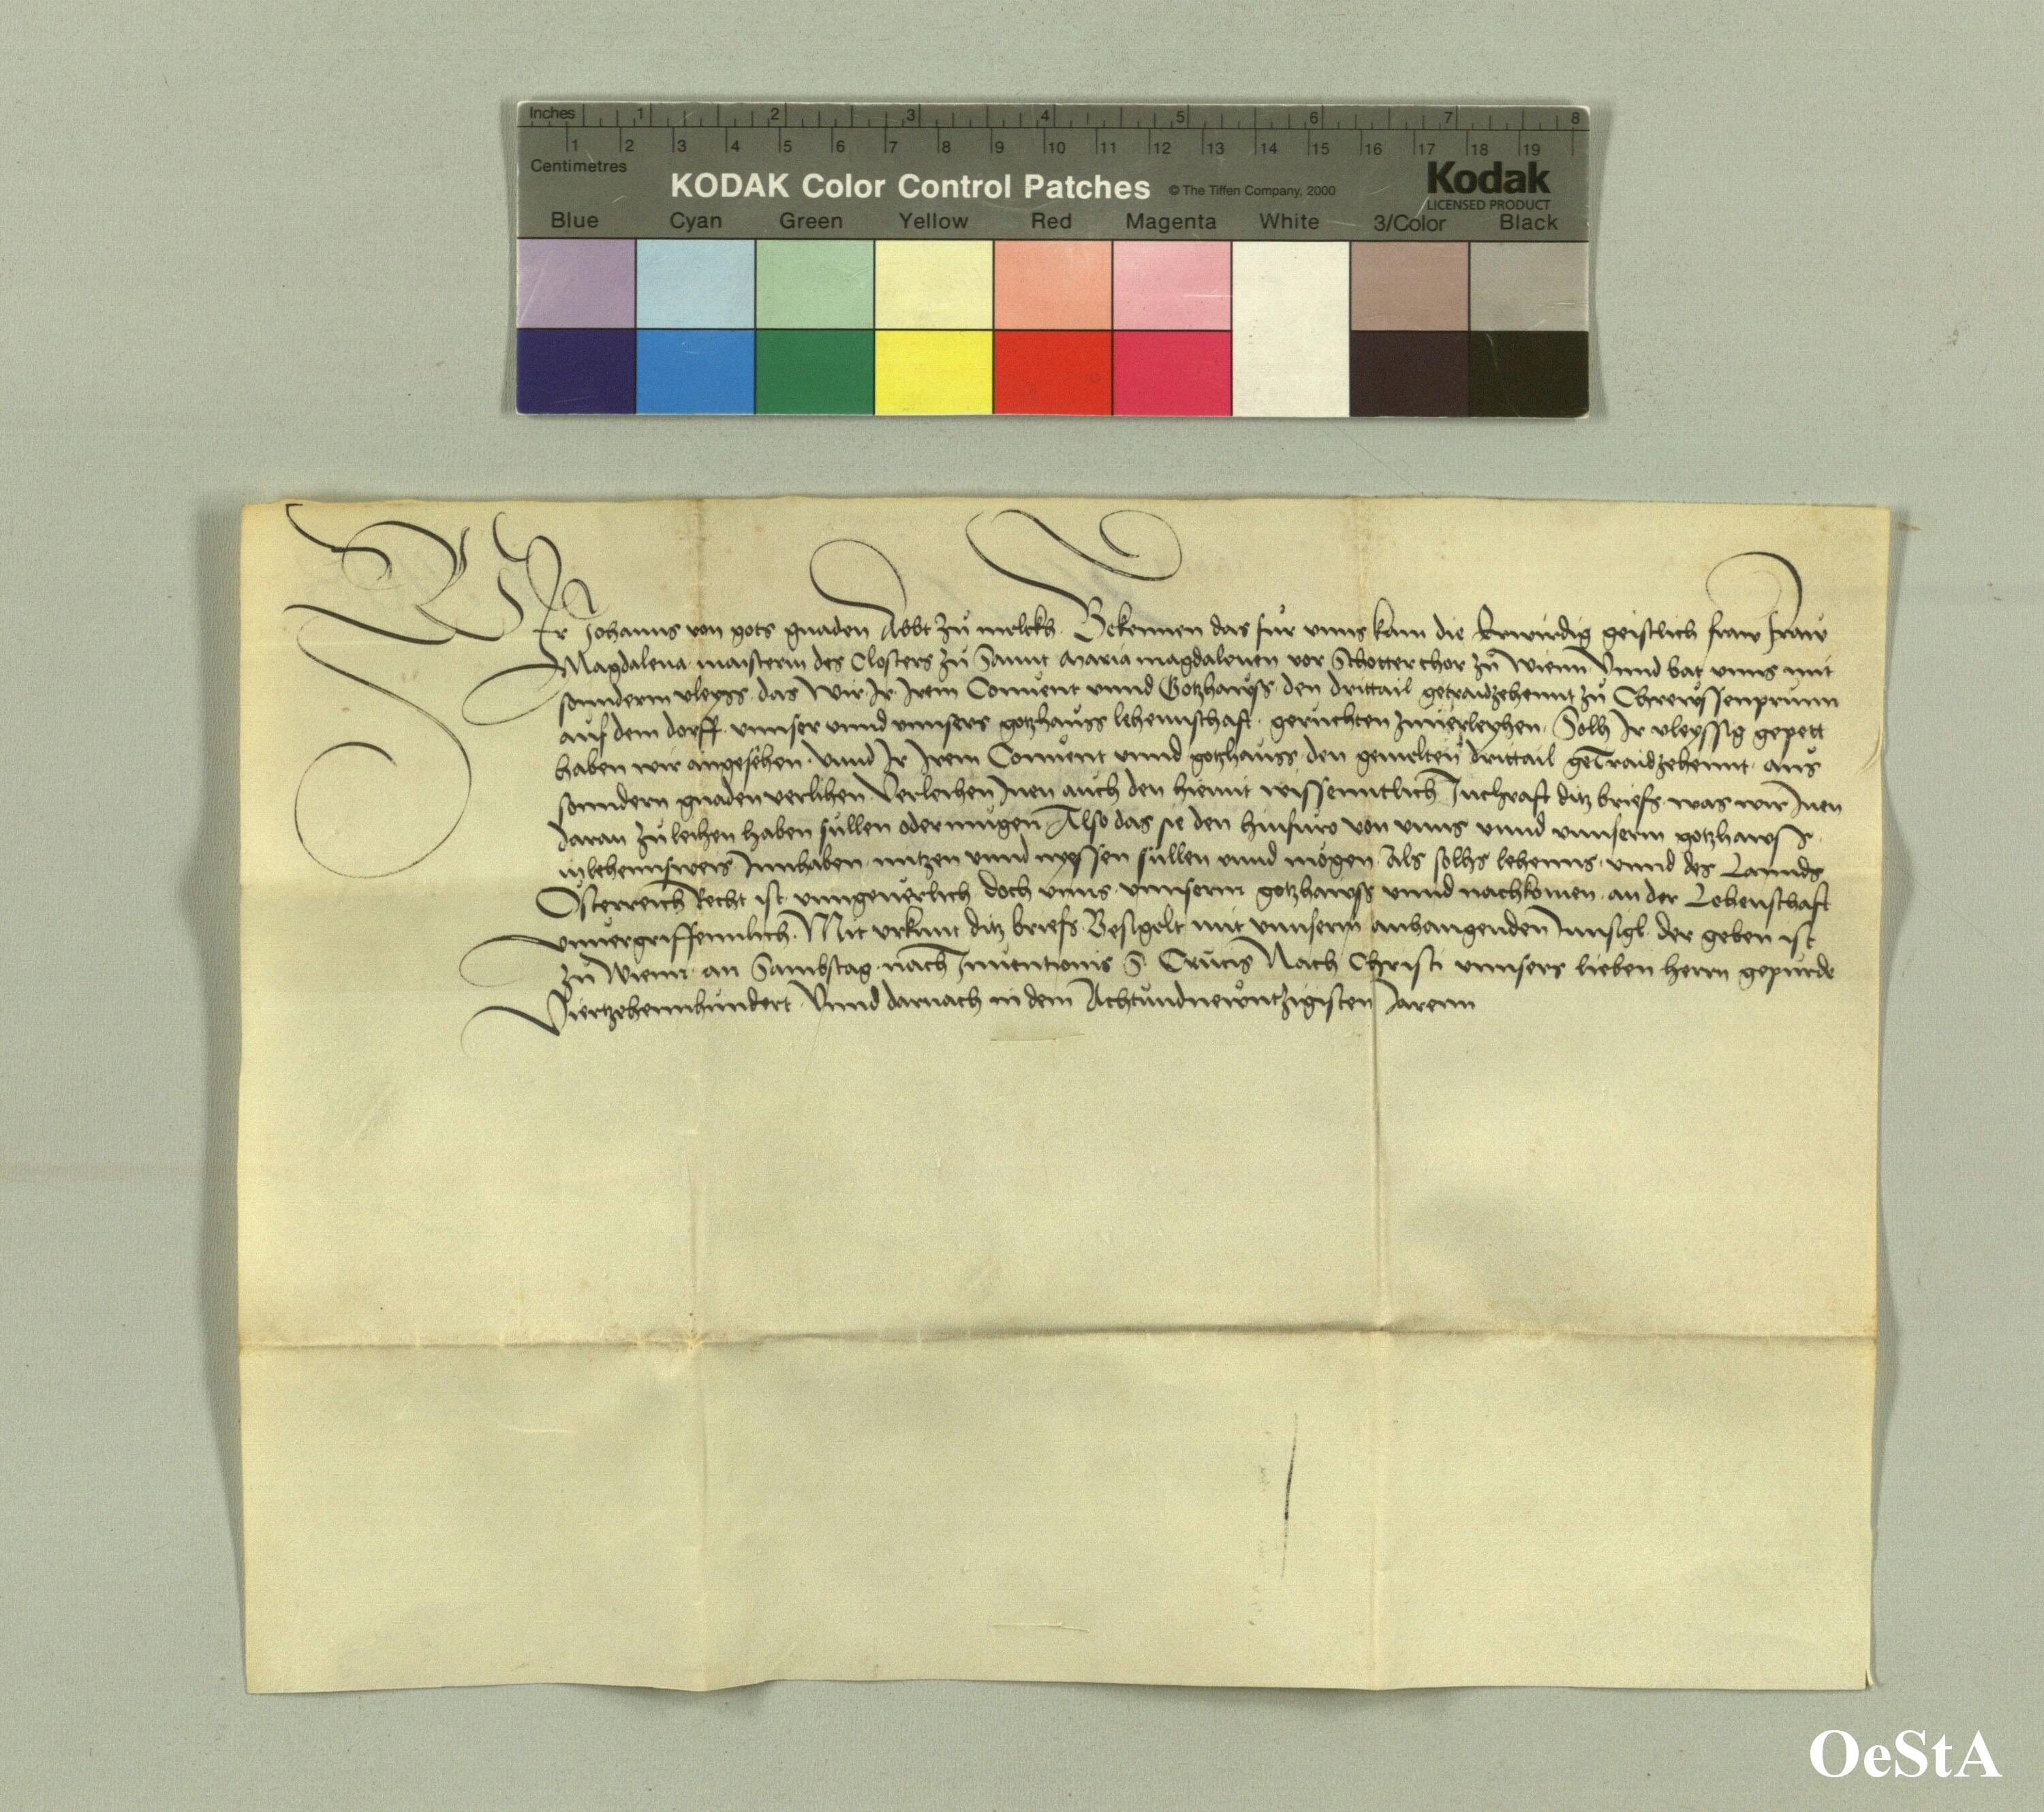 Inches 1 2 3 4 5 6 7 8
1 2 3 4 5 6 7 8 9 10 11 12 13 14 15 16 17 18 19
Centimetres
KODAK Color Control Patches © The Tiffen Company, 2000 Kodak
LICENSED PRODUCT
Blue Cyan Green Yellow Red Magenta White 3/Color Black
Wir Johanns von gots gnaden Abbt zů melckh. Bekennen das für unns kam die Erwirdig geistlich fraw fraw
Magdalena maisterin des Closters zů Sannt Maria magdalenen vor Schotterthor zů Wienn Vnnd bat vnns mit
sonnderm vleyss das Wir Ir Irem Conuent vnnd Gotzhawss den drittail getraidzehennt zů Chrewssenprunn
auf dem dorff vnnser vnnd vnnsers gotzhauss lehennschaft geruchten zuuerleyhen Solh Ir vleyssig gepett
haben wir angesehen Vnnd Ir Irem Conuent vnnd gotzhauss den gemelten drittail getraidzehennt aus
sonndern gnaden verlihen Verleihen Inen auch den hiemit wissenntlich Inchraft ditz briefs was wir Inen
daran zů leihen haben sullen oder mugen Also das sie den hinfuro von vnns vnnd vnnserm gotzhawss
in lehennsweis Innhaben nutzen vnnd nyessen sullen vnnd mögen Als solhs lehenns vnnd des Lannds
Österreich Recht ist vnngeuerlich doch vnns vnnserm gotzhawss vnnd nachkomen an der Lehenschaft
vnuergriffennlich. Mit vrkunt ditz briefs Besigelt mit vnnserm anhangenden Innsigl der geben ist
zů Wienn an Sambstag nach Inuentionis S. Crucis Nach Christi vnnsers lieben herrn gepurde
Viertzehennhundert Vnnd darnach in dem Achtundnewntzigisten Jarenn
OeStA